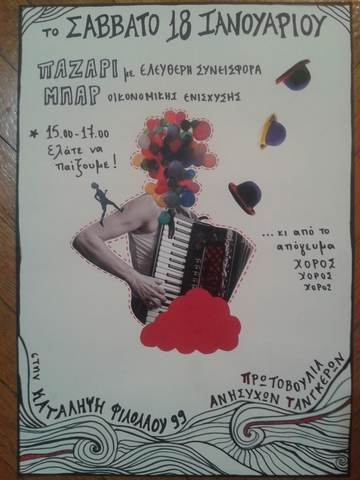 το ΣΑΒΒΑΤΟ 18 ΙΑΝΟΥΑΡΙΟΥ
ΠΑΖΑΡΙ με ΕΛΕΥΘΕΡΗ ΣΥΝΕΙΣΦΟΡΑ
ΜΠΑΡ ΟΙΚΟΝΟΜΙΚΗΣ ΕΝΙΣΧΥΣΗΣ
* 15.00-17.00
Ελάτε να
παίξουμε!
...κι από το
απόγευμα
ΧΟΡΟΣ
ΧΟΡΟΣ
ΧΟΡΟΣ
στην
ΚΑΤΑΛΗΨΗ ΦΙΛΟΛΑΟΥ 99
ΠΡΩΤΟΒΟΥΛΙΑ
ΑΝΗΣΥΧΩΝ ΤΑΝΓΚΕΡΩΝ